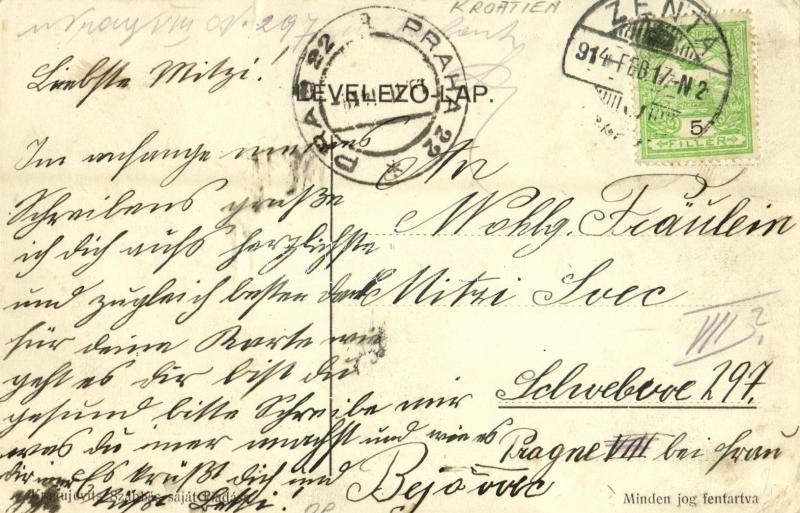 KROATIEN
ZENTA
914 FEB.17-N2
5
FILLÉR
PRAG 22 PRAHA 22
LEVELEZŐ-LAP.
Liebste Mitzi!
Im anfange meines
Schreibens grüße
ich dich aufs herzlichste
und zugleich besten Dank
für deine Karte wie
geht es dir bist du
gesund bitte Schreibe mir
was du imer machst und wie es
dir imer Es krüßt dich und
küßt
An
Wohlg. Fräulein
Mitzi Svec
VIII?
297.
Pragne VIII bei Frau
saját kiadása
Minden jog fentartva